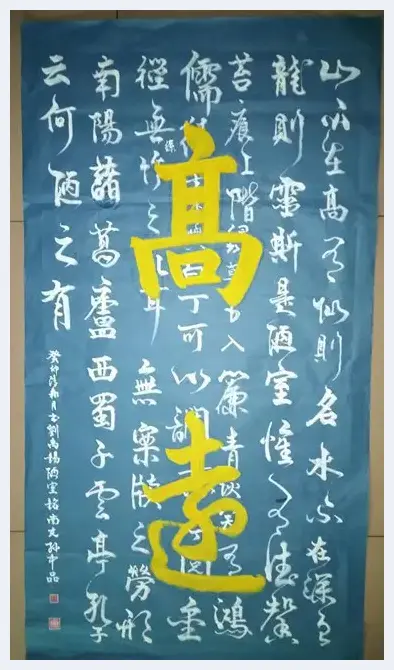 高遠
山不在高有仙則名水不在深有
龍則靈斯是陋室惟吾德馨
苔痕上階綠草色入簾青談笑有鴻
儒往來白丁可以調金
經無絲竹之耳無案牘之勞形
南陽諸葛廬西蜀子雲亭孔子
云何陋之有
癸卯月書劉禹錫陋室銘尚文孫中品